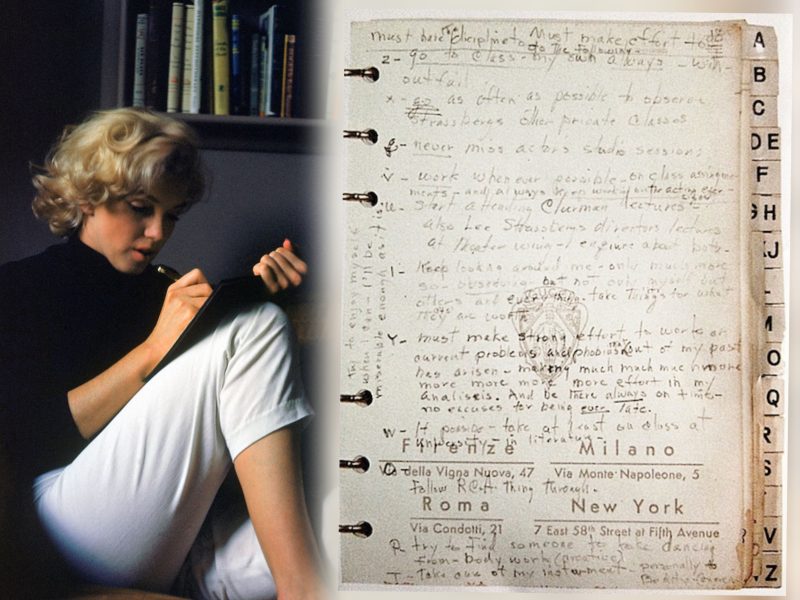 must have the discipline to do the following
Must make effort to do
z - go to class - my own always - with-
out fail
x - go as often as possible to observe
Strassbergs other private classes
g - never miss actors studio sessions
v - work whenever possible - on class assignme-
ments - and always keep working on the acting exer-
cises
u - start attending Clurman lectures -
also Lee Strassbergs directors lectures
at theater wing - enquire about both -
l - keep looking around me - only much more
so - observing - but not only myself but
others and everything - take things for what
they are worth
y - must make strong effort to work on
current problems and phobias that out of my past
has arisen - making much much much more
more more more more effort in my
analisis. And be there always on time -
no excuses for being ever late.
w - If possible - take at least on class at
university - in literature -
Firenze Milano
Via della Vigna Nuova, 47 Via Monte Napoleone, 5
Follow RCA thing through.
Roma New York
Via Condotti, 21 7 East 58th Street at Fifth Avenue
try to find someone to take dancing
from - body work (creative)
Take care of my instrument - personally &
try to enjoy myself
when I can - I'll be
miserable enough as it is
A
B
C
DE
F
GH
M
O
Q
R
S
V
Z